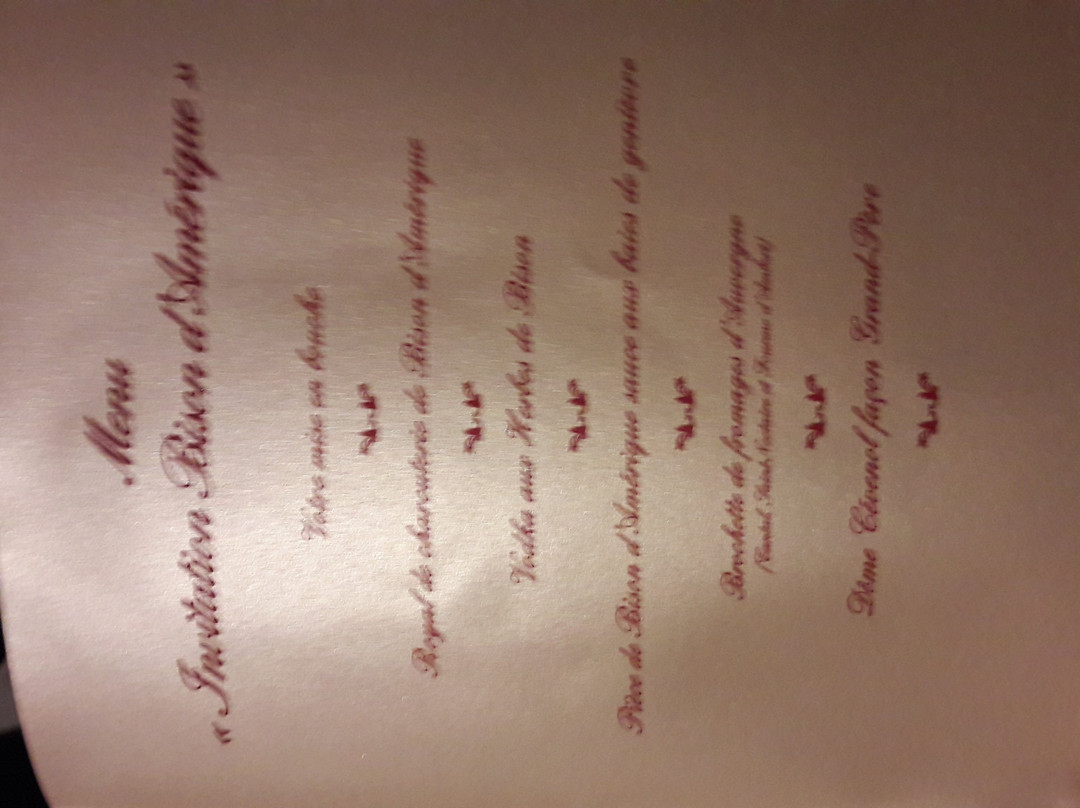 Menu
« Invitation Bison d'Amérique »
Votre mise en bouche
Royal de charcuterie de Bison d'Amérique
Vodka aux Herbes de Bison
Pièce de Bison d'Amérique sauce aux baies de genièvre
Brochette de fromages d'Auvergne
(Cantal, Saint-Nectaire et Fourme d'Ambert)
Dôme Cévenol façon Grand-Père